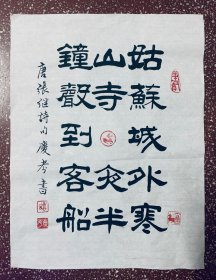 姑蘇城外寒
山寺夜半
鐘聲到客船
唐張继詩句慶書